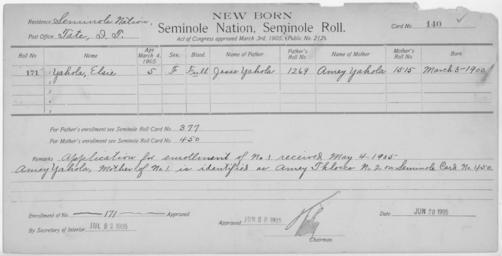 NEW BORN
Residence Seminole Nation,
Seminole Nation, Seminole Roll.
Card No. 140
Post Office Tate, I. T.
Act of Congress approved March 3rd, 1905, (Public No. 212).
Roll No Name Age March 4, 1905 Sex. Blood. Name of Father Father's Roll No. Name of Mother Mother's Roll No. Born
171 Yahola, Elsie 5 F Full Jesse Yahola 1269 Amey Yahola 1515 March 3-1900
1
2
3
4
5
For Father's enrollment see Seminole Roll Card No. 377
For Mother's enrollment see Seminole Roll Card No. 450
Remarks Application for enrollment of No. 1 received May 4-1905
Amey Yahola, Mother of No. 1 is identified as Amey Thlocco No. 2 on Seminole Card No. 450
Enrollment of No. 171 Approved
By Secretary of Interior 1905
Approved 1905
Chairman
Date JUN 20 1905